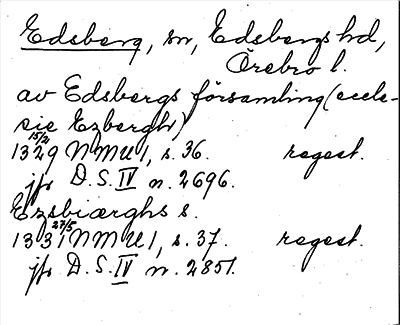 Edsberg, sn, Edsbergs hd,
Örebro l.
av Edsbergs församling (eccle-
sie Ezberghr)
15/2
1329 NMU 1, s. 36. regest.
jfr D. S. IV n. 2696.
Ezsbiærghs s.
27/5
1331 NMU 1, s. 37. regest.
jfr D. S. IV n. 2851.